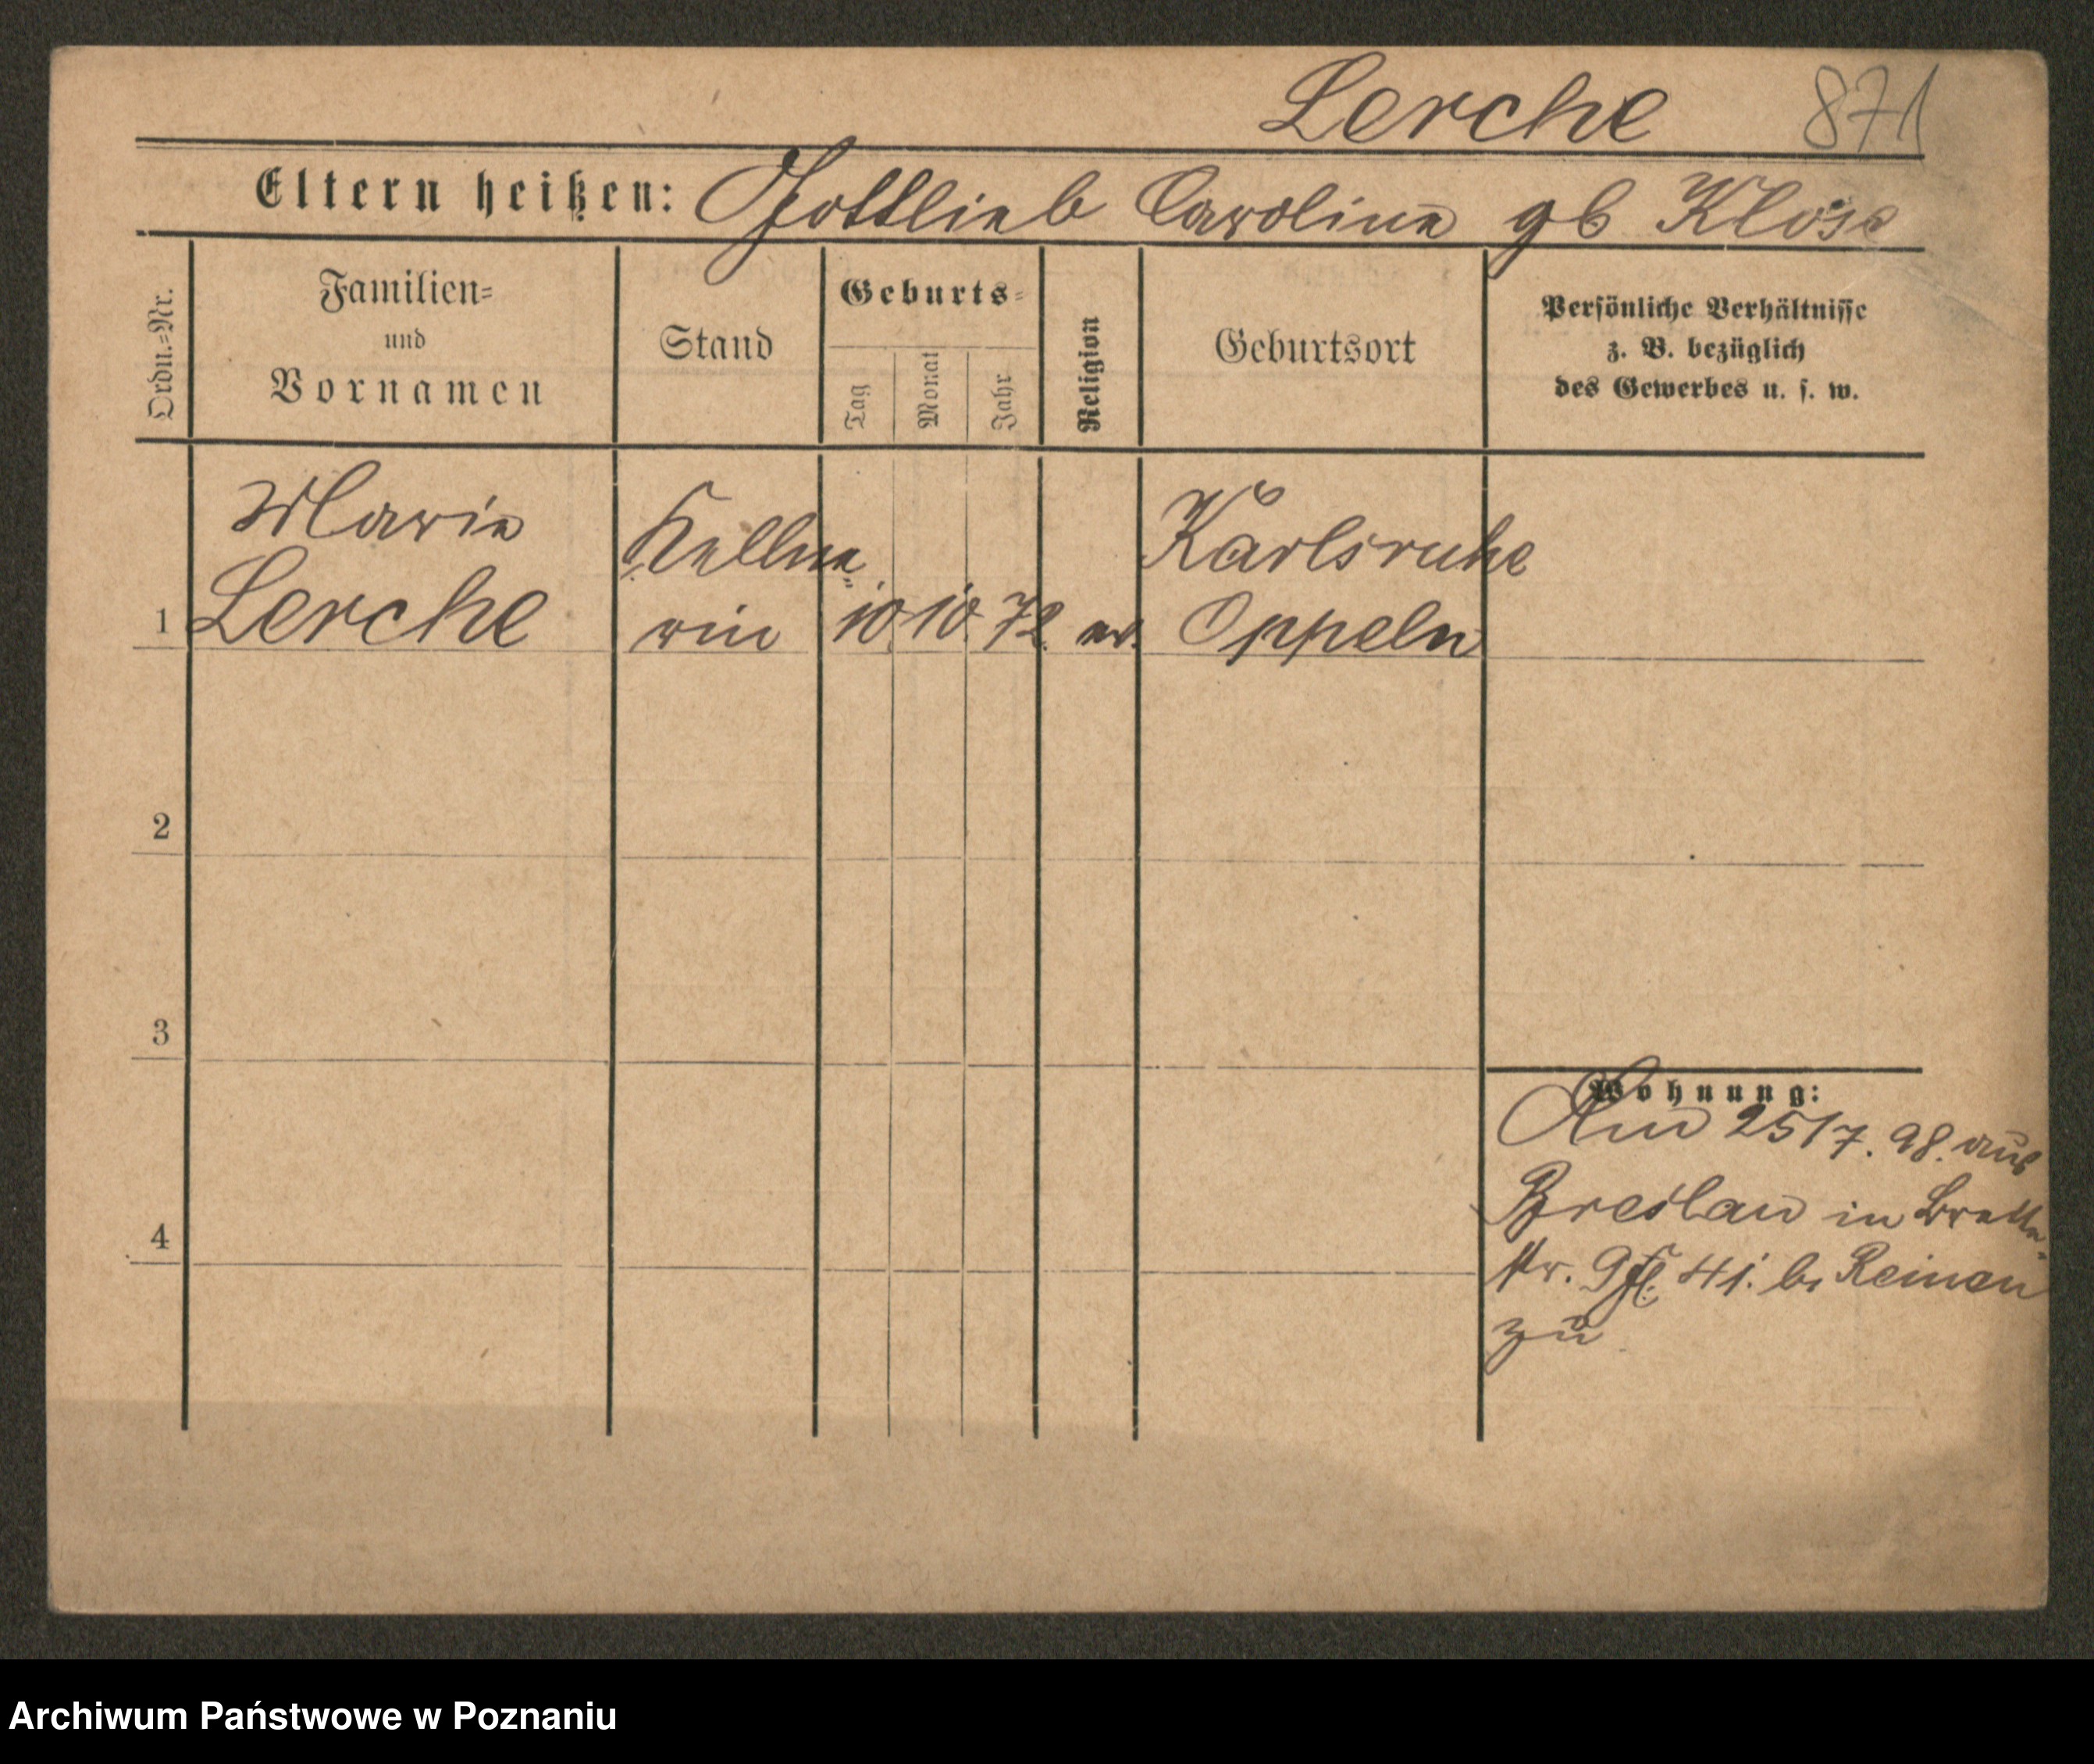 Lerche 871
Eltern heißen: Gottlieb Caroline gb Klose
Ordn.=Nr.
Familien=
und
Vornamen
Stand
Geburts=
Tag
Monat
Jahr
Religion
Geburtsort
Persönliche Verhältnisse
z. B. bezüglich
des Gewerbes u. s. w.
1
Marie
Lerche
Kellne=
rin
10. 10. 72.
ev.
Karlsruhe
Oppeln
2
3
4
Wohnung:
25/7. 98. aus
Breslau in
str. 9 b. Reimann
zu
Archiwum Państwowe w Poznaniu